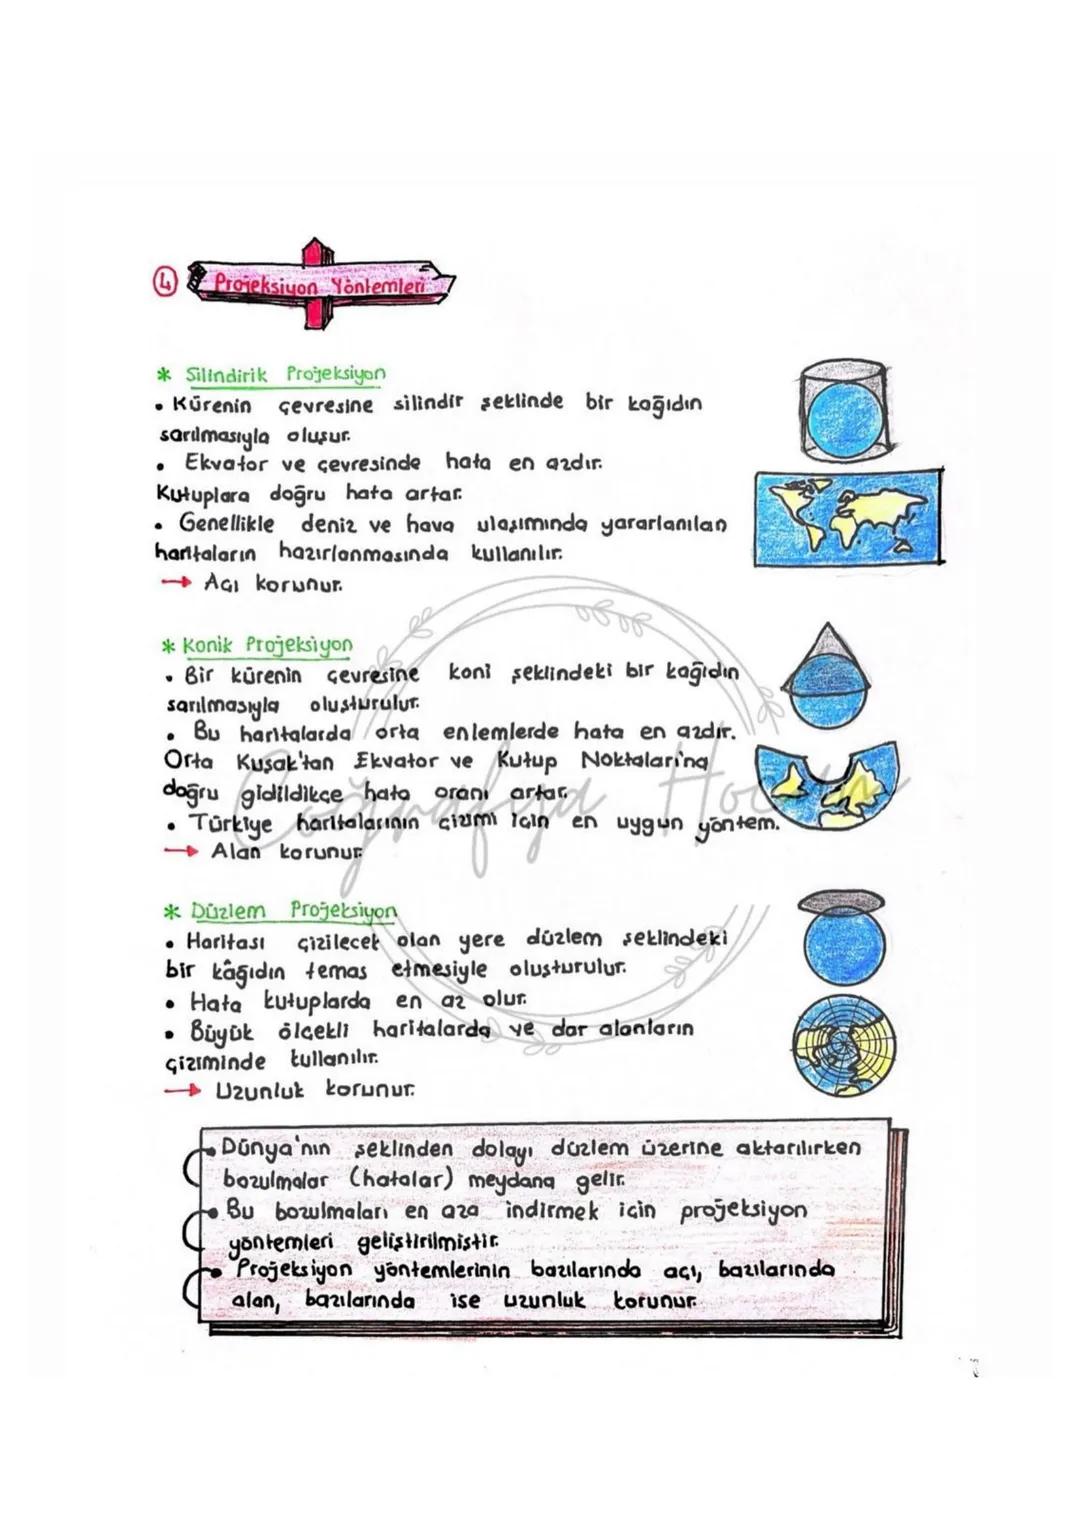 4 Projeksiyon Yöntemleri
* Silindirik Projeksiyon
• Kürenin çevresine silindir şeklinde bir kağıdın
sarılmasıyla oluşur.
• Ekvator ve çevresinde hata en azdır.
Kutuplara doğru hata artar.
• Genellikle deniz ve hava ulaşımında yararlanılan
haritaların hazırlanmasında kullanılır.
→ Açı korunur.
* Konik Projeksiyon
• Bir kürenin çevresine koni şeklindeki bir kağıdın
sarılmasıyla oluşturulur.
• Bu haritalarda orta enlemlerde hata en azdır.
Orta Kuşak'tan Ekvator ve Kutup Noktaları'na
doğru gidildikçe hata oranı artar.
• Türkiye haritalarının çizimi için en uygun yöntem.
→ Alan korunur.
* Düzlem Projeksiyon
• Haritası çizilecek olan yere düzlem şeklindeki
bir kâğıdın temas etmesiyle oluşturulur.
• Hata kutuplarda en az olur.
• Büyük ölçekli haritalarda ve dar alanların
çiziminde kullanılır.
→ Uzunluk korunur.
• Dünya'nın şeklinden dolayı düzlem üzerine aktarılırken
bozulmalar (hatalar) meydana gelir.
• Bu bozulmaları en aza indirmek için projeksiyon
yöntemleri geliştirilmiştir.
• Projeksiyon yöntemlerinin bazılarında açı, bazılarında
alan, bazılarında ise uzunluk korunur.